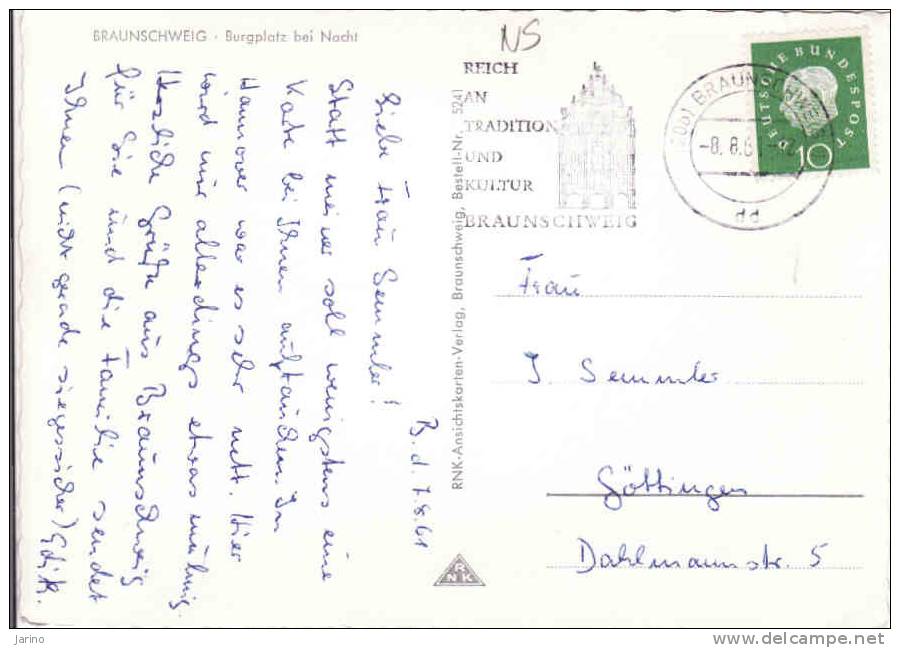 BRAUNSCHWEIG · Burgplatz bei Nacht
NS
REICH
AN
TRADITION
UND
KULTUR
BRAUNSCHWEIG
BRAUNSCHWEIG
-8.8.6
dd
DEUTSCHE BUNDESPOST
10
B. d. 7.8.61
Liebe Frau Semmler!
Statt meiner soll wenigstens eine
Karte bei Ihnen auftauchen. In
Hannover war es sehr nett. Hier
wird nur allerdings etwas mulmig.
Herzliche Grüße aus Braunschweig
für Sie und die Familie sendet
Ihnen (nicht grade siegessicher)
RNK-Ansichtskarten-Verlag, Braunschweig, Bestell-Nr. 5241
RNK
Frau
J. Semmler
Göttingen
Dahlmannstr. 5
Jarino
delcampe.net